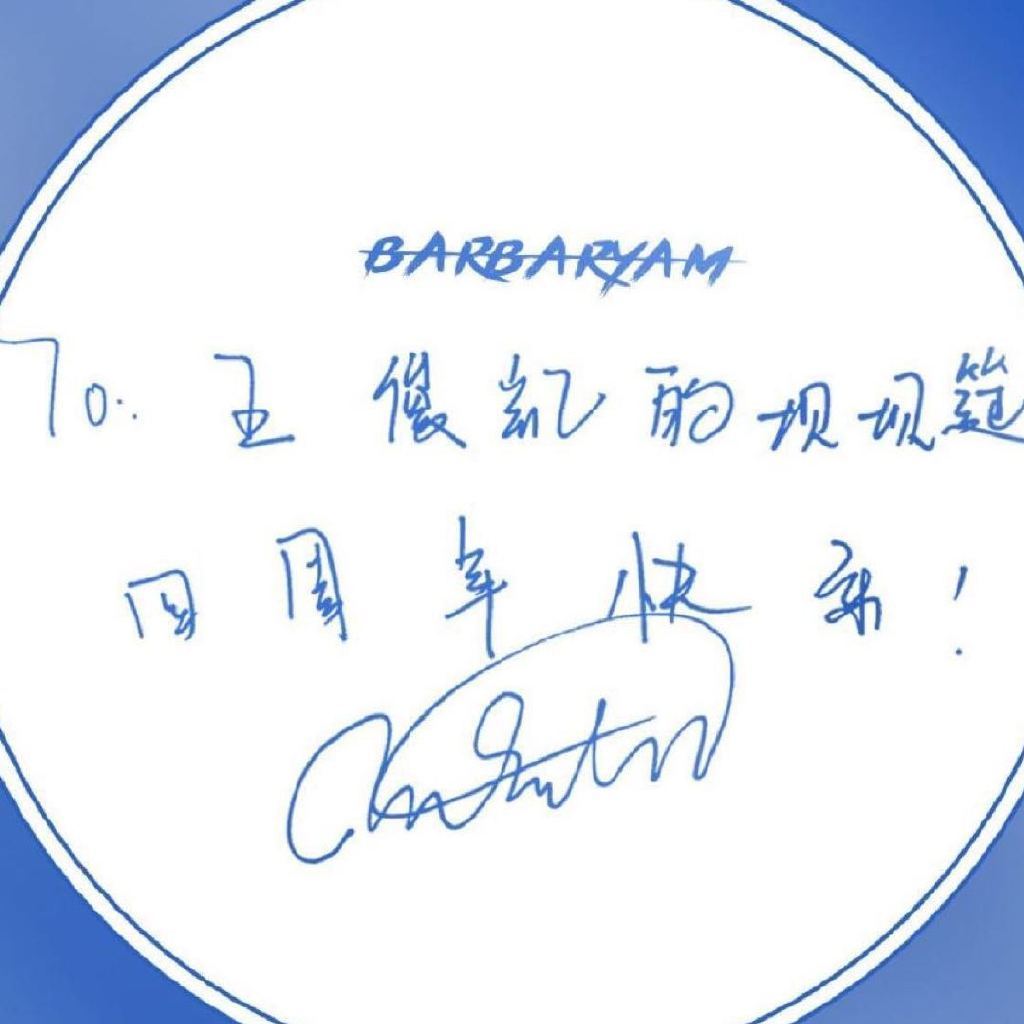 BARBARYAM
To: 王俊凯的坝坝筵
四周年快乐!